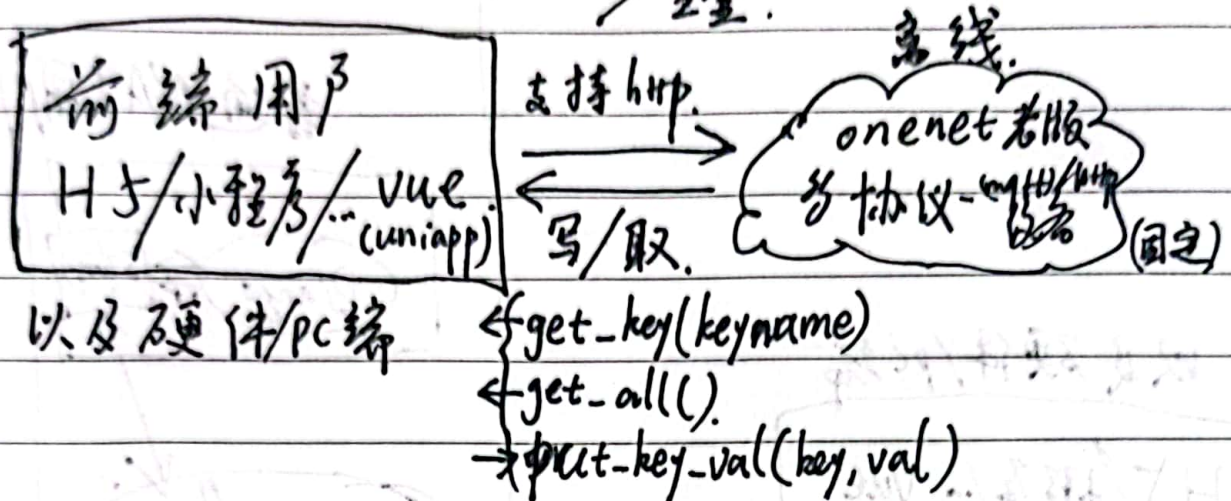 离线.
前端用户
H5/小程序/... vue.
(uniapp)
支持http.
写/取.
onenet老版
多协议-mqtt/http
设备
(固定)
以及硬件/pc端
get_key(keyname)
get_all().
put_key_val(key,val)